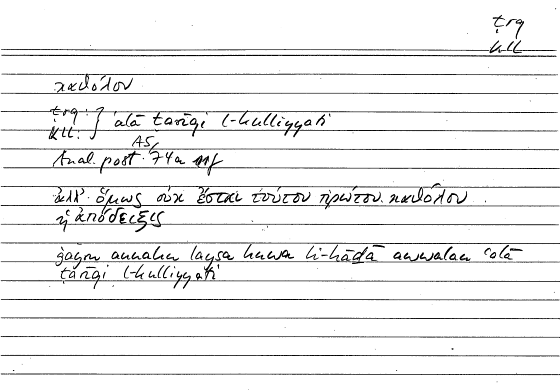 ṭrq
kll
καθόλου
ṭrq: } ʿalā ṭarīqi l-kulliyyati
kll:
Anal. post. 74a
ἀλλ' ὅμως οὐκ ἔσται τούτου πρώτου καθόλου
ἡ ἀπόδειξις
ġayra annahu laysa huwa li-hāḏā awwalan ʿalā
ṭarīqi l-kulliyyati